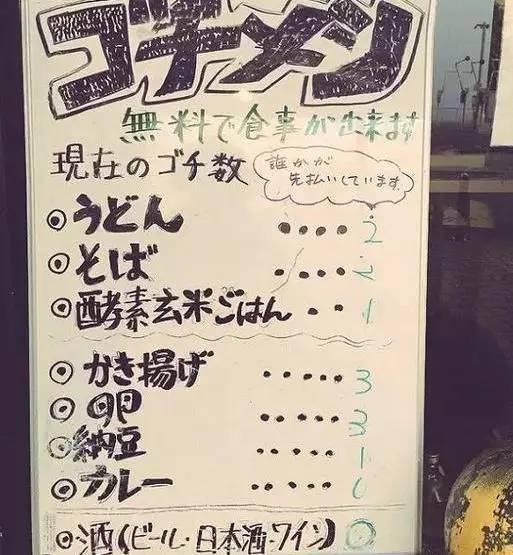 ゴチメン
無料で食事が出来ます
現在のゴチ数
誰かが
先払いしています。
◎うどん ････ 2
◎そば ････ 2
◎酵素玄米ごはん ･･ 1
◎かき揚げ ･････ 3
◎卵 ･････ 3
◎納豆 ･････ 1
◎カレー ･････ 0
◎酒(ビール・日本酒・ワイン)